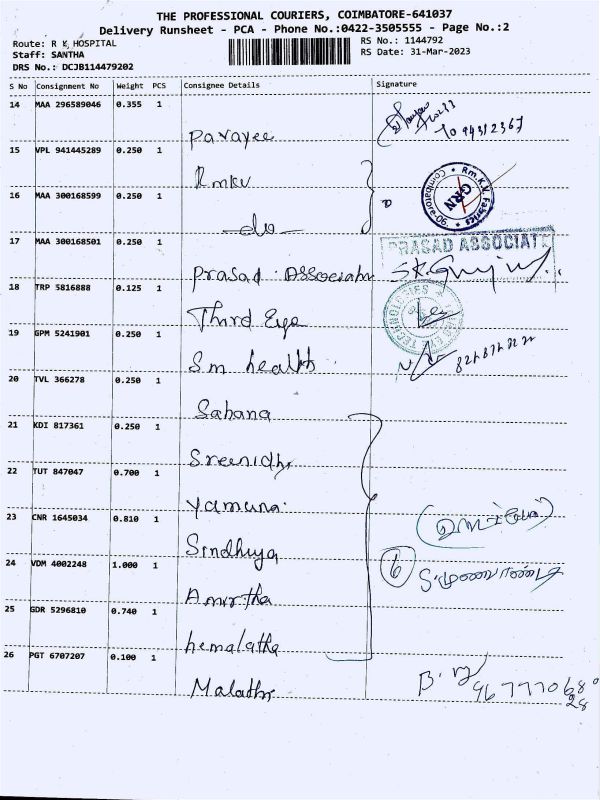 THE PROFESSIONAL COURIERS, COIMBATORE-641037
Delivery Runsheet - PCA - Phone No.:0422-3505555 - Page No.:2
Route: R K HOSPITAL
RS No.: 1144792
Staff: SANTHA
RS Date: 31-Mar-2023
DRS No.: DCJB114479202
S No Consignment No Weight PCS Consignee Details Signature
14 MAA 296589046 0.355 1
Paravayee
15 VPL 941445289 0.250 1
Rmkv
16 MAA 300168599 0.250 1
-do-
Rm.K.V. Fabrics
GRN
Coimbatore-90
17 MAA 300168501 0.250 1
Prasad Associates
PRASAD ASSOCIAT
18 TRP 5816888 0.125 1
Third Eye
TECHNOLOGIES
19 GPM 5241901 0.250 1
Sm health
20 TVL 366278 0.250 1
Sahana
21 KDI 817361 0.250 1
Sreenidhi
22 TUT 847047 0.700 1
Yamuna
23 CNR 1645034 0.810 1
Sindhuya
24 VDM 4002248 1.000 1
Amirtha
25 GDR 5296810 0.740 1
hemalatha
26 PGT 6707207 0.100 1
Malathi